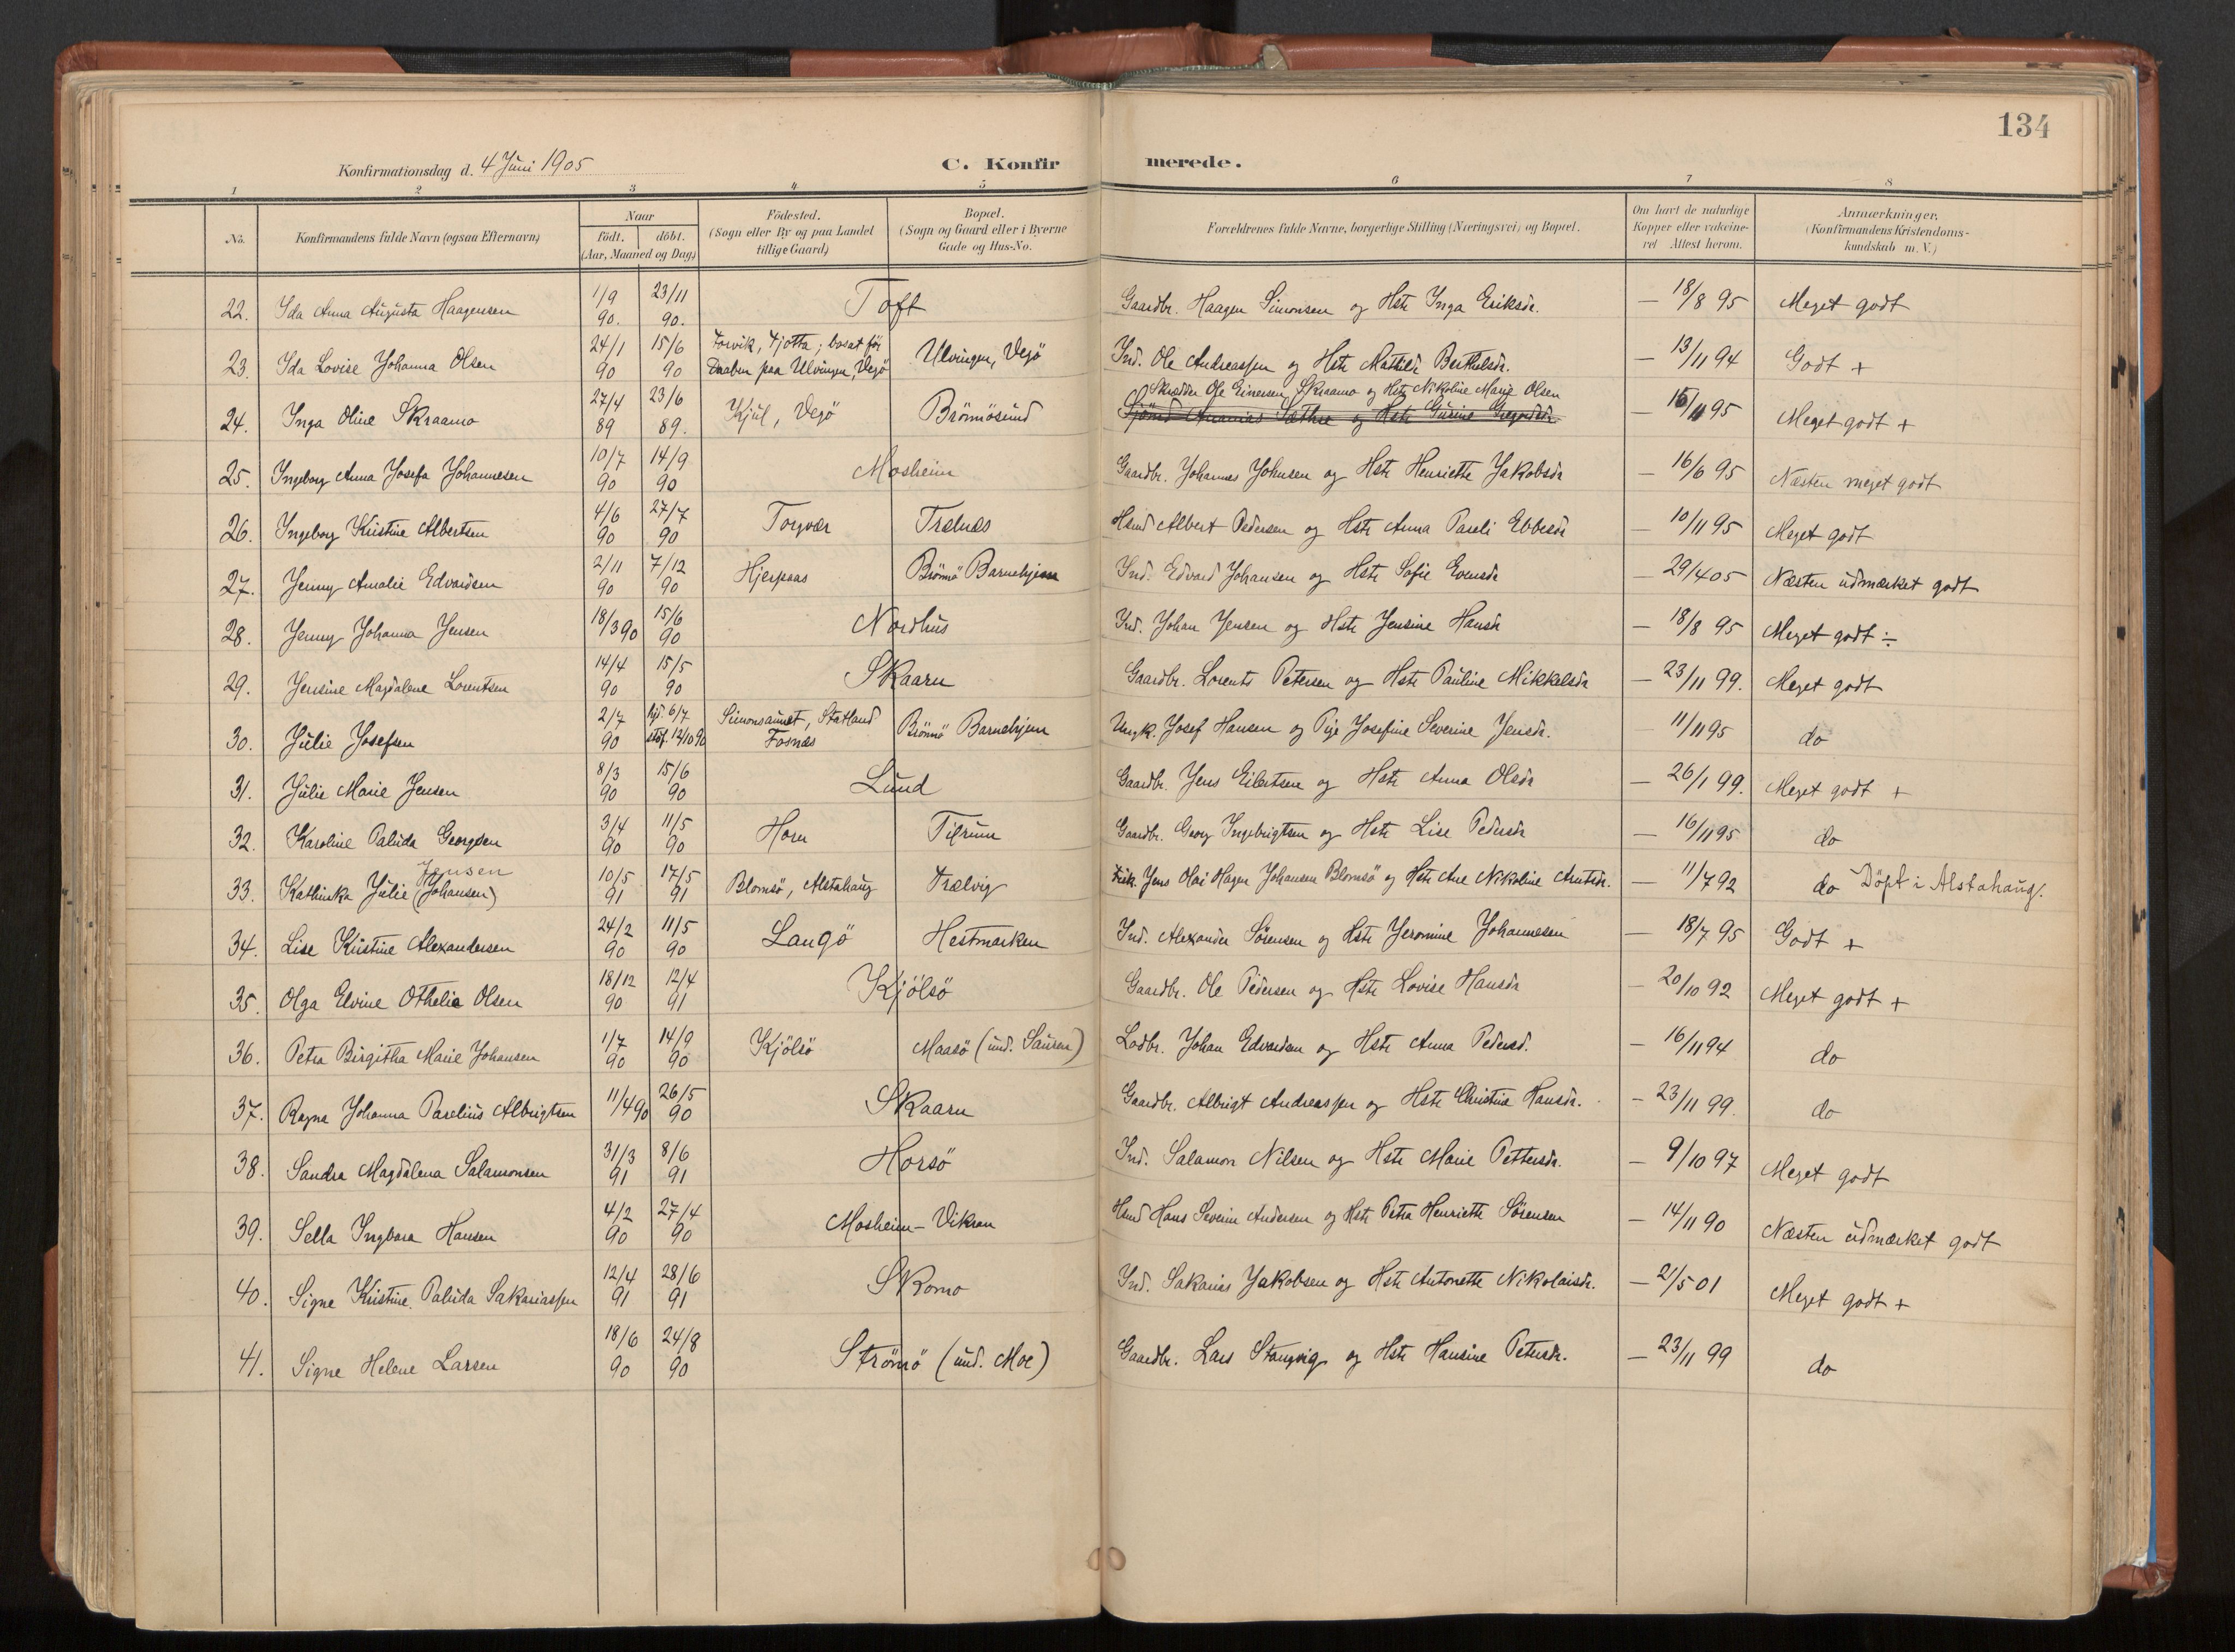 134
Konfirmationsdag d. 4 Juni 1905
C. Konfirmerede.
1 2 3 4 5 6 7 8
No. | Konfirmandens fulde Navn (ogsaa Efternavn) | Naar født. døbt. (Aar, Maaned og Dag) | Fødested. (Sogn eller By og paa Landet tillige Gaard) | Bopæl. (Sogn og Gaard eller i Byerne Gade og Hus-No. | Forældrenes fulde Navne, borgerlige Stilling (Næringsvei) og Bopæl. | Om havt de naturlige Kopper eller vakcineret Attest herom. | Anmærkninger. (Konfirmandens Kristendomskundskab m. V.)
22. Ida Anna Augusta Haagensen 1/9 90. 23/11 90. Toft Gaardbr. Haagen Simonsen og Hstr Inga Eriksdr. — 18/8 95 Meget godt
23. Ida Lovise Johanna Olsen 24/1 90 15/6 90 Forvik, Tjøtta; bosat før Daaben paa Ulvingen, Vegö Ulvingen, Vegö Ind. Ole Andreassen og Hstr Mathild Berthelsdr. — 13/11 94 Godt +
24. Inga Oline Skraamo 27/4 89 23/6 89. Kjul, Vegö Brönnösund Skrædder Ole Einersen Skraamo og Hstr Nikoline Marie Olsen — 15/11 95 Meget godt +
25. Ingeborg Anna Josefa Johannesen 10/7 90 14/9 90 Mosheim Gaardbr. Johannes Johnsen og Hstr Henriette Jakobsdr — 16/6 95 Næsten meget godt
26. Ingeborg Kristine Albertsen 4/6 90 27/7 90 Torgvær Trælnæs Hsmd Albert Pedersen og Hstr Anna Pareli Ebbesdr — 10/11 95 Meget godt
27. Jenny Amalie Edvardsen 2/11 90 7/12 90 Hjerpaas Brönnö Barnehjem Ind. Edvard Johansen og Hstr Sofie Evensdr — 29/4 05 Næsten udmærket godt
28. Jenny Johanna Jensen 18/3 90 15/6 90 Nordhus Ind. Johan Jensen og Hstr Jensine Hansdr — 18/8 95 Meget godt ÷
29. Jensine Magdalene Lorentsen 14/4 90 15/5 90 Skaaru Gaardbr. Lorents Petersen og Hstr Pauline Mikkelsdr — 23/11 99. Meget godt
30. Julie Josefsen 2/7 90 hjd. 6/7 stdf. 12/10 90 Simonsaunet, Statland Fosnæs Brönnö Barnehjem Ungk. Josef Hansen og Pige Josefine Severine Jensdr. — 11/11 95 do
31. Julie Marie Jensen 8/3 90 15/6 90 Lund Gaardbr. Jens Eilertsen og Hstr Anna Olsdr — 26/1 99. Meget godt +
32. Karoline Paluda Georgsen 3/4 90 11/5 90 Horn Tilrum Gaardbr. Georg Ingebrigtsen og Hstr Lise Pedersdr — 16/11 95 do
33. Kathinka Julie (Johansen) Jensen 10/5 91 17/5 91 Blomsö, Alstahaug Trælvig Fisk. Jens Olai Hagen Johansen Blomsö og Hstr Ane Nikoline Arntsdr. — 11/7 92 do Döpt i Alstahaug.
34. Lise Kristine Alexandersen 24/2 90 11/5 90 Langö Hestmarken Ind. Alexander Sörensen og Hstr Jeromine Johannesen — 18/7 95 Godt +
35. Olga Elvine Othelia Olsen 18/12 90 12/4 91 Kjölsö Gaardbr. Ole Pedersen og Hstr Lovise Hansdr — 20/10 92 Meget godt +
36. Petra Birgitha Marie Johansen 1/7 90 14/9 90 Kjölsö Maasö (und. Sausen) Ladbr. Johan Edvardsen og Hstr Anna Pedersd. — 16/11 94 do
37. Ragna Johanna Parelius Albrigtsen 11/4 90 26/5 90 Skaaru Gaardbr. Albrigt Andreassen og Hstr Christine Hansdr. — 23/11 99. do
38. Sandra Magdalena Salamonsen 31/3 91 8/6 91 Horsö Ind. Salamon Nilsen og Hstr Marie Pettersdr. — 9/10 97 Meget godt
39. Sella Ingbora Hansen 4/2 90 27/4 90 Mosheim-Vikran Hsmd Hans Severin Andersen og Hstr Petra Henriette Sörensen — 14/11 90 Næsten udmærket godt
40. Signe Kristine Paluda Sakariassen 12/4 91 28/6 91 Skomo Ind. Sakarias Jakobsen og Hstr Antonette Nikolaisdr. — 21/5 01 Meget godt +
41. Signe Helene Larsen 18/6 90 24/8 90 Strömö (und. Moe) Gaardbr. Lars Stangvig og Hstr Hansine Petersdr. — 23/11 99 do